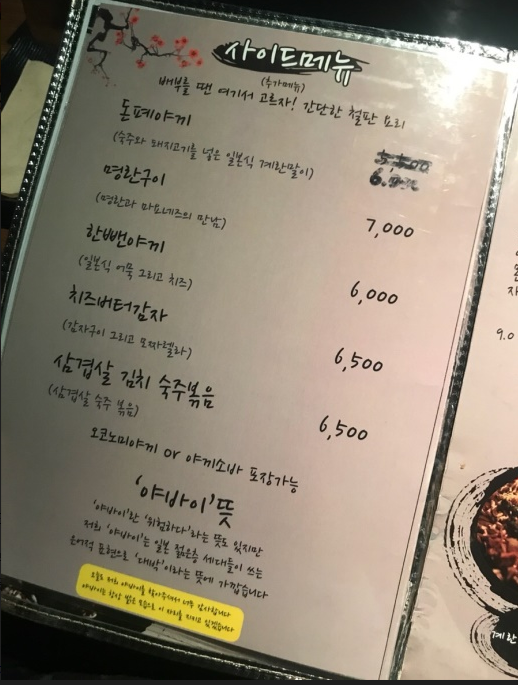 사이드메뉴
(추가메뉴)
배부를 땐 여기서 고르자! 간단한 철판 요리
돈페야끼
(숙주와 돼지고기를 넣은 일본식 계란말이)
명란구이
7,000
(명란과 마요네즈의 만남)
한뺀야끼
6,000
(일본식 어묵 그리고 치즈)
치즈버터감자
6,500
(감자구이 그리고 모짜렐라)
삼겹살 김치 숙주볶음
6,500
(삼겹살 숙주 볶음)
오코노미야끼 or 야끼소바 포장가능
'야바이'뜻
'야바이'란 '위험하다'라는 뜻도 있지만
저희 '야바이'는 일본 젊은층 세대들이 쓰는
은어적 표현으로 '대박'이라는 뜻에 가깝습니다
오늘도 저희 야바이를 찾아주셔서 너무 감사합니다
야바이는 항상 밝은 모습으로 이 자리를 지키고 있겠습니다
9.0
계란